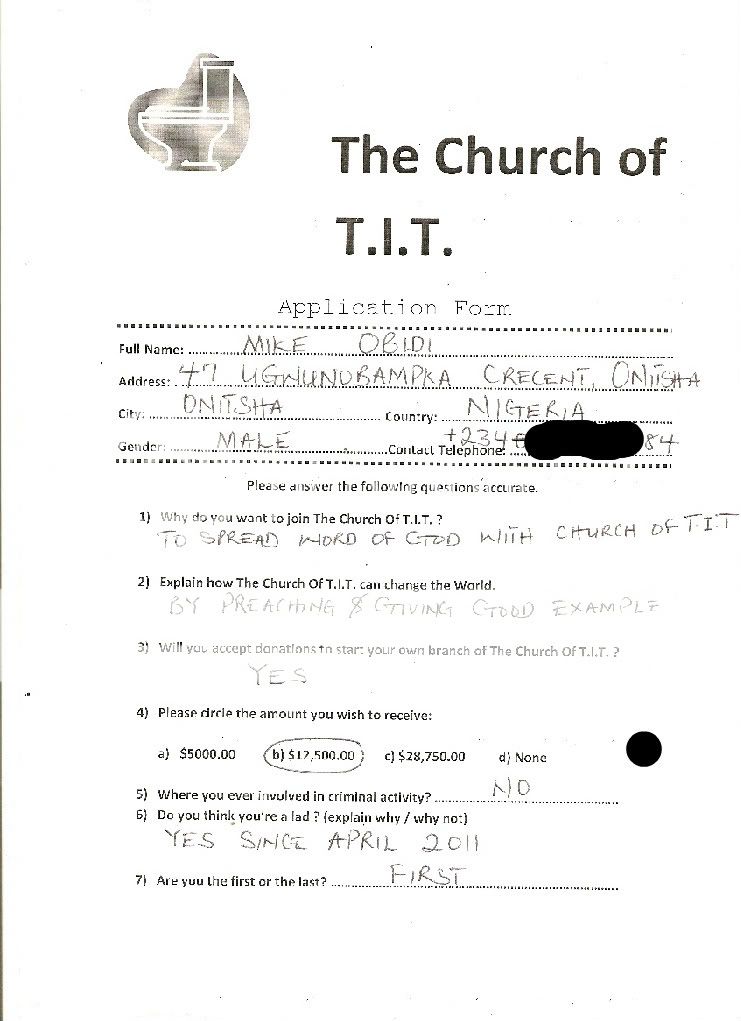 The Church of
T.I.T.
Application Form
Full Name: MIKE OBIDI
Address: 47 UGWUNOBAMPKA CRECENT, ONITSHA
City: ONITSHA Country: NIGERIA
Gender: MALE Contact Telephone: +234 84
Please answer the following questions accurate.
1) Why do you want to join The Church Of T.I.T. ?
TO SPREAD WORD OF GOD WITH CHURCH OF T.I.T
2) Explain how The Church Of T.I.T. can change the World.
BY PREACHING & GIVING GOOD EXAMPLE
3) Will you accept donations to start your own branch of The Church Of T.I.T. ?
YES
4) Please circle the amount you wish to receive:
a) $5000.00 b) $12,500.00 c) $28,750.00 d) None
5) Where you ever involved in criminal activity? NO
6) Do you think you're a lad ? (explain why / why not)
YES SINCE APRIL 2011
7) Are you the first or the last? FIRST